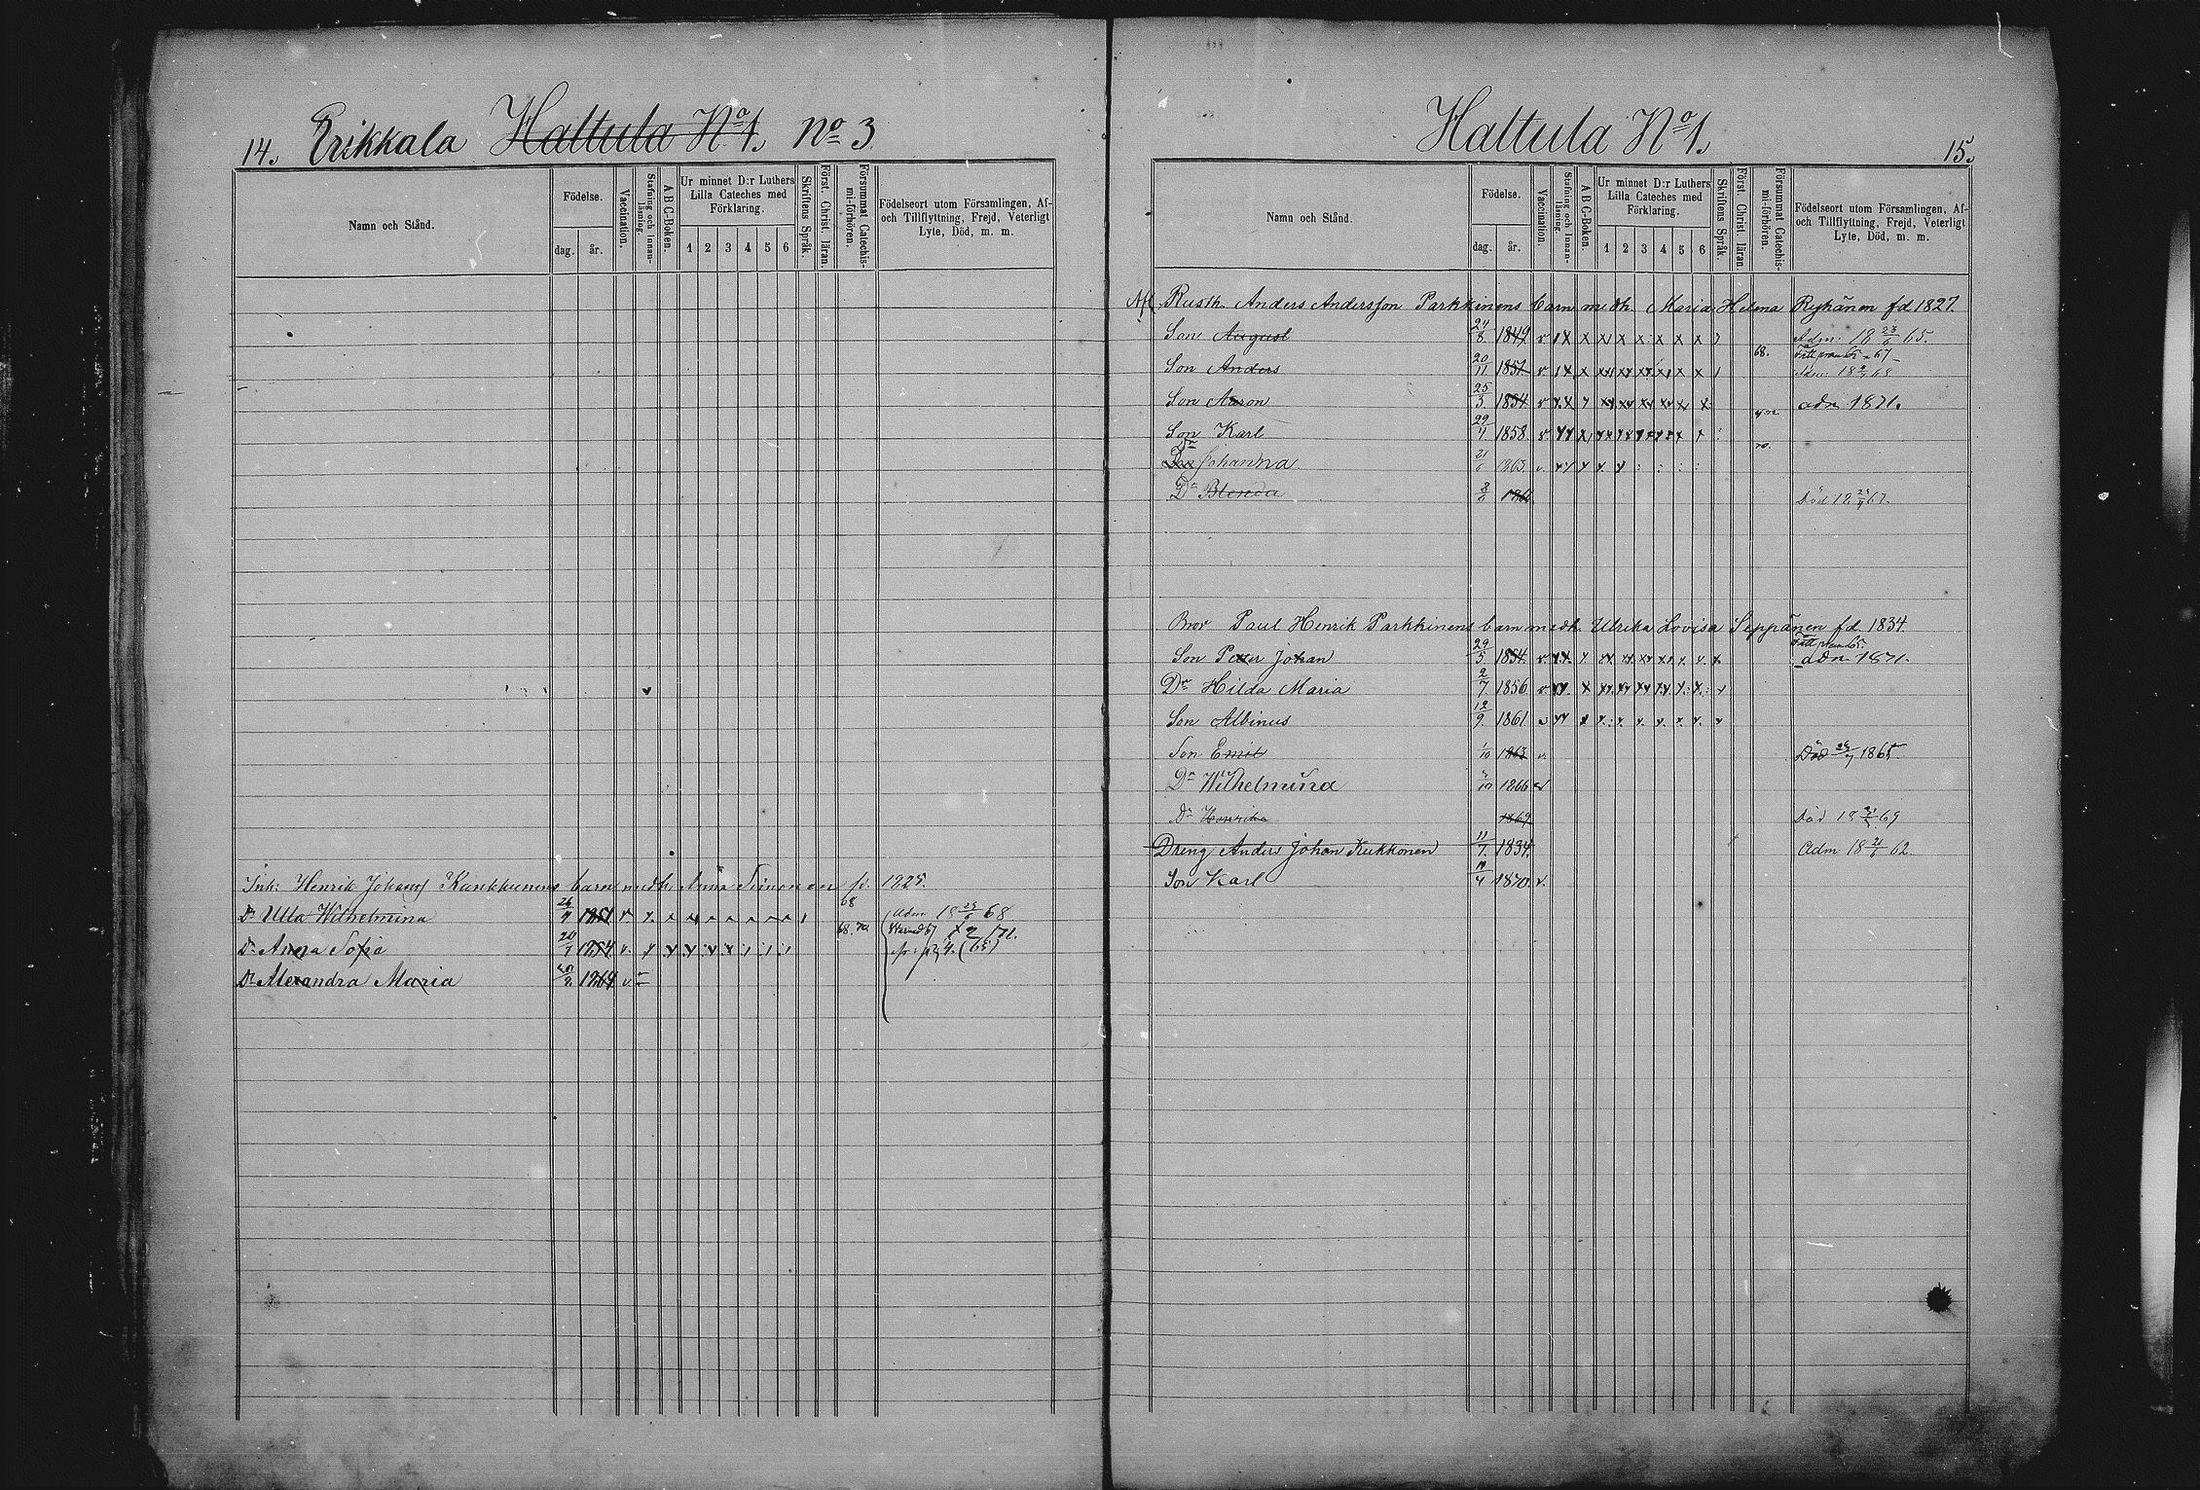 14. Erikkala Hattula No 1. No 3
Namn och Stånd.
Födelse.
dag. år.
Vaccination.
Stafning och Innan-läsning.
A B C-Boken.
Ur minnet D:r Luthers Lilla Cateches med Förklaring.
1 2 3 4 5 6
Skriftens Språk.
Först. Christ. läran.
Försummat Catechis-mi-förhören.
Födelseort utom Församlingen, Af- och Tillflyttning, Frejd, Veterligt Lyte, Död, m. m.
Inh: Henrik Johans barn medh Anna f. 1825.
Dr Ulla Wilhelmina 26/9 1851 v. 68 Adm 18 68
Dr Anna Sofia 20/7 1854 v. 68. 70
Dr Alexandra Maria 1864 v.
Hattula No 1. 15.
Namn och Stånd.
Födelse.
dag. år.
Vaccination.
Stafning och Innan-läsning.
A B C-Boken.
Ur minnet D:r Luthers Lilla Cateches med Förklaring.
1 2 3 4 5 6
Skriftens Språk.
Först. Christ. läran.
Försummat Catechis-mi-förhören.
Födelseort utom Församlingen, Af- och Tillflyttning, Frejd, Veterligt Lyte, Död, m. m.
Rusth. Anders Andersson Parkkinens barn medh. Maria Helena Ryhänen fd 1827.
Son August 24/8 1849 v Adm: 18 23/6 65.
Son Anders 20/11 1851 v 68. Adm: 18 68
Son Aaron 25/3 1854 v adm 1871.
Son Karl 29/4 1858 v 70.
Dr Johanna 21/6 1863 v.
Dr 3/6 Död 18 67.
Bror Paul Henrik Parkkinens barn medh. Ulrika Lovisa Seppänen fd 1834.
Son Peter Johan 29/5 1854. v. adm 1871.
Dr Hilda Maria 2/7 1856 v
Son Albinus 12/9 1861 v
Son Emil 1/10 1863 v. Död 1865
Dr Wilhelmina /10 1866 v
Dr Henrika 1869 Död 18 69
Dreng Anders Johan Kukkonen 11/7 1834. Adm 18 62
Son Karl /4 1870 v.